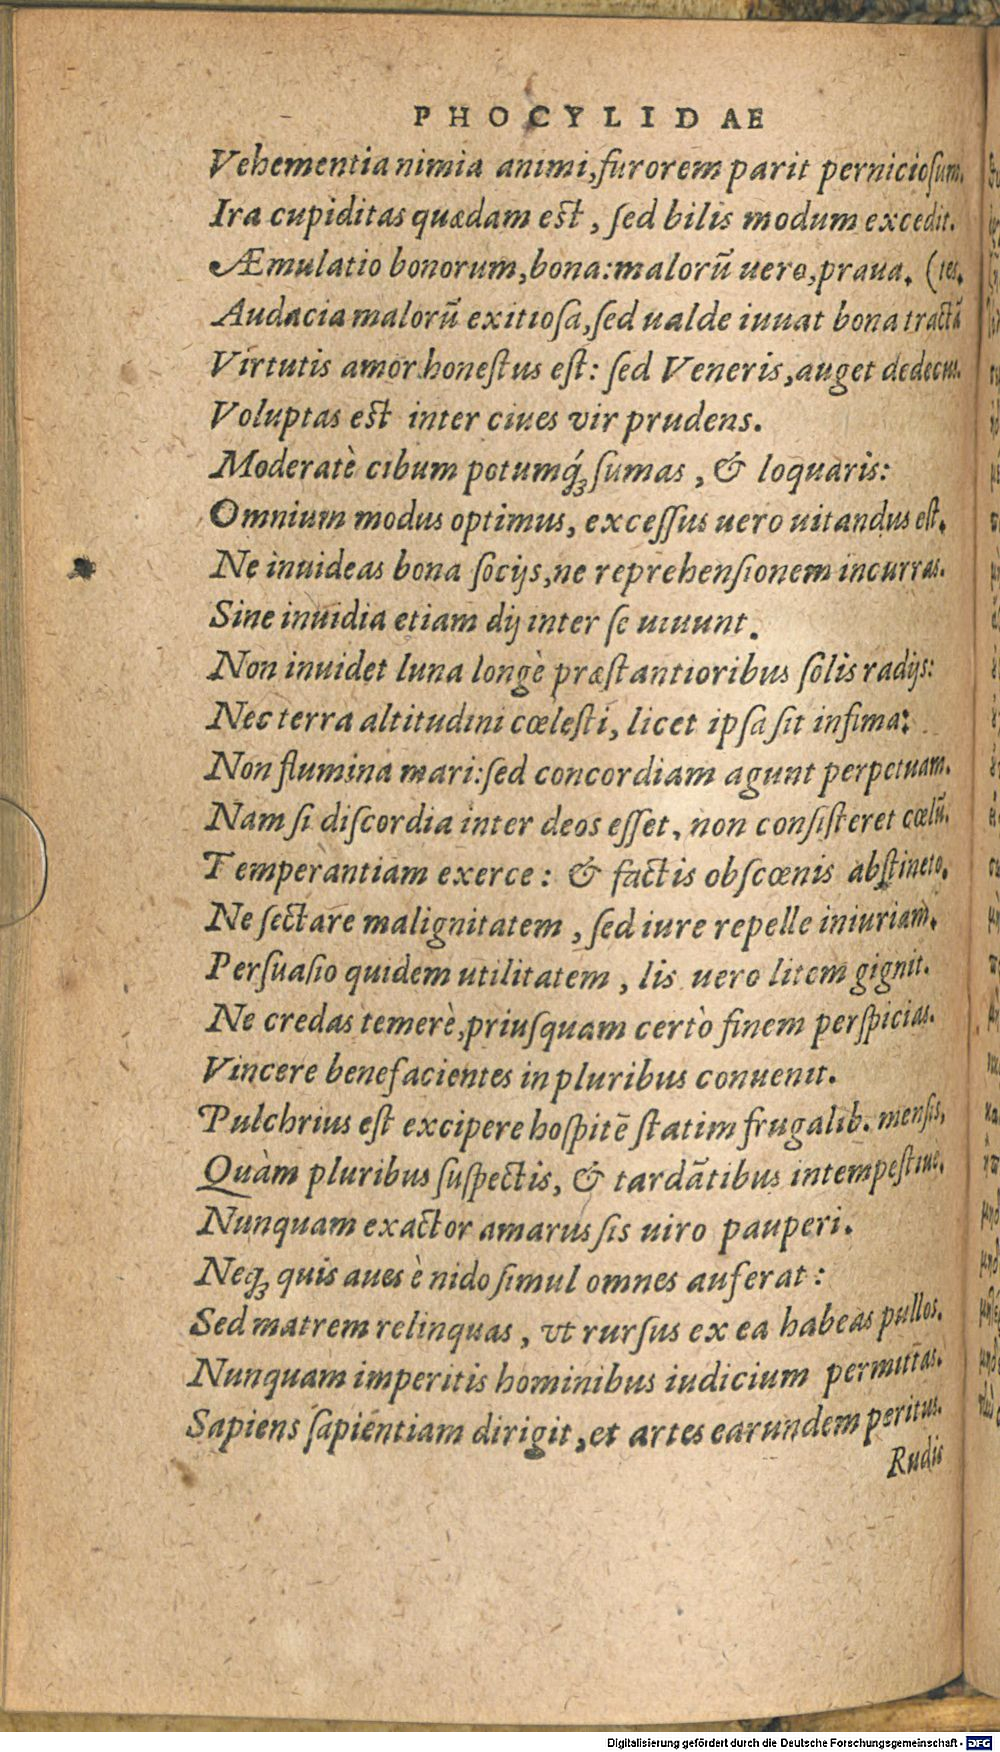 PHOCYLIDAE
Vehementia nimia animi, furorem parit perniciosum.
Ira cupiditas quædam est, sed bilis modum excedit.
Æmulatio bonorum, bona: malorũ uero, praua. (tes.
Audacia malorũ exitiosa, sed ualde iuuat bona tractã
Virtutis amor honestus est: sed Veneris, auget dedecus.
Voluptas est inter ciues vir prudens.
Moderatè cibum potumq́; sumas, & loquaris:
Omnium modus optimus, excessus uero uitandus est.
Ne inuideas bona socijs, ne reprehensionem incurras.
Sine inuidia etiam dij inter se uiuunt.
Non inuidet luna longè præstantioribus solis radijs:
Nec terra altitudini cœlesti, licet ipsa sit infima:
Non flumina mari: sed concordiam agunt perpetuam.
Nam si discordia inter deos esset, non consisteret cœlũ.
Temperantiam exerce: & factis obscœnis abstineto.
Ne sectare malignitatem, sed iure repelle iniuriam.
Persuasio quidem utilitatem, lis uero litem gignit.
Ne credas temerè, priusquam certò finem perspicias.
Vincere benefacientes in pluribus conuenit.
Pulchrius est excipere hospitẽ statim frugalib. mensis,
Quàm pluribus suspectis, & tardãtibus intempestiuè.
Nunquam exactor amarus sis uiro pauperi.
Neq; quis aues è nido simul omnes auferat:
Sed matrem relinquas, vt rursus ex ea habeas pullos.
Nunquam imperitis hominibus iudicium permittas.
Sapiens sapientiam dirigit, et artes earundem peritus.
Rudis
Digitalisierung gefördert durch die Deutsche Forschungsgemeinschaft - DFG